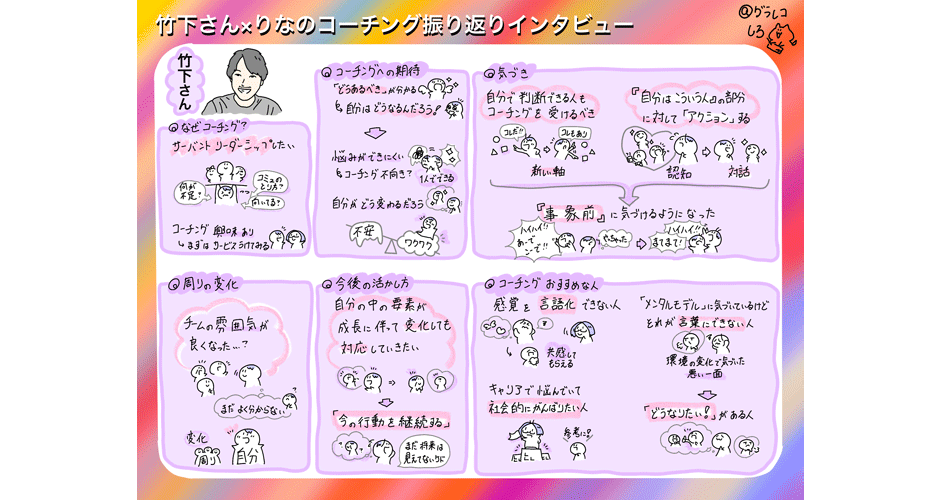 竹下さん×りなのコーチング振り返りインタビュー
@グラレコ
しろ
竹下さん
Qなぜコーチング?
サーバントリーダーシップしたい
何が
不足?
コミュの
とり方?
向いてる?
コーチング興味あり
↳まずはサービスうけてみる!
Qコーチングへの期待
「どうあるべき」が分かる
↳自分はどうなるんだろう?
悩みができにくい
↳コーチング不向き?
1人でできる
自分がどう変わるだろう
不安
ワクワク
Q気づき
自分で判断できる人も
コーチングを受けるべき
コレだ!!
コレもあり
新しい軸
『自分はこういう人』の部分
に対して「アクション」する
認知
対話
『事象前』に気づけるようになった
ハイハイ!!
あーで
こーで!!
やっちゃった
ハイハイ!!
まてまて!
Q周りの変化
チームの雰囲気が
良くなった…?
まだよく分からない
変化
周り
自分
Q今後の活かし方
自分の中の要素が
成長に伴って変化しても
対応していきたい
「今の行動を継続する」
まだ将来は
見えてないケド
Qコーチングおすすめな人
感覚を言語化できない人
共感して
もらえる
キャリアで悩んでいて
社会的にがんばりたい人
参考に!
「メンタルモデル」に気づいているけど
それが言葉にできない人
環境の変化で気づいた
悪い一面
「どうなりたい?」がある人